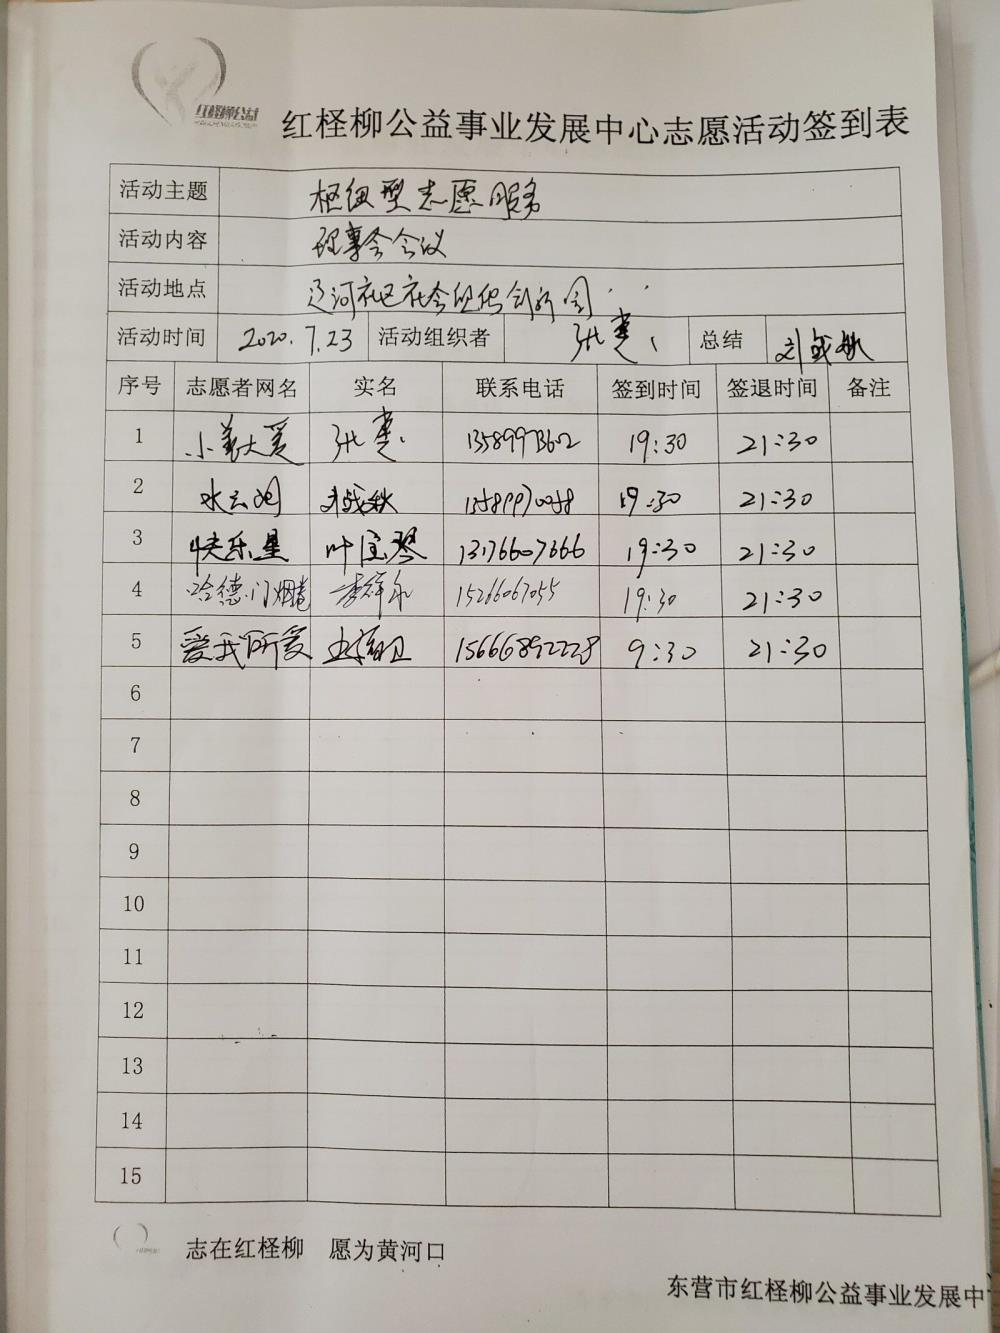 红柽柳公益
红柽柳公益事业发展中心志愿活动签到表
活动主题 枢纽型志愿服务
活动内容 理事会会议
活动地点 辽河社区社会组织创新园
活动时间 2020.7.23 活动组织者 张 总结 刘战秋
序号 志愿者网名 实名 联系电话 签到时间 签退时间 备注
1 小美大爱 张 13589973602 19:30 21:30
2 水云涧 刘战秋 19:30 21:30
3 快乐星 叶宝琴 13176607666 19:30 21:30
4 哈德门烟卷 李祥永 15266067055 19:30 21:30
5 爱我所爱 15666892228 9:30 21:30
6
7
8
9
10
11
12
13
14
15
志在红柽柳 愿为黄河口
东营市红柽柳公益事业发展中